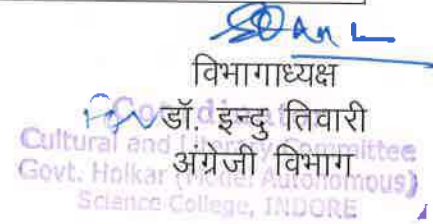 विभागाध्यक्ष
डॉ. इन्दु तिवारी
अंग्रेजी विभाग
Cultural and Literary Committee
Govt. Holkar (Model Autonomous)
Science College, INDORE